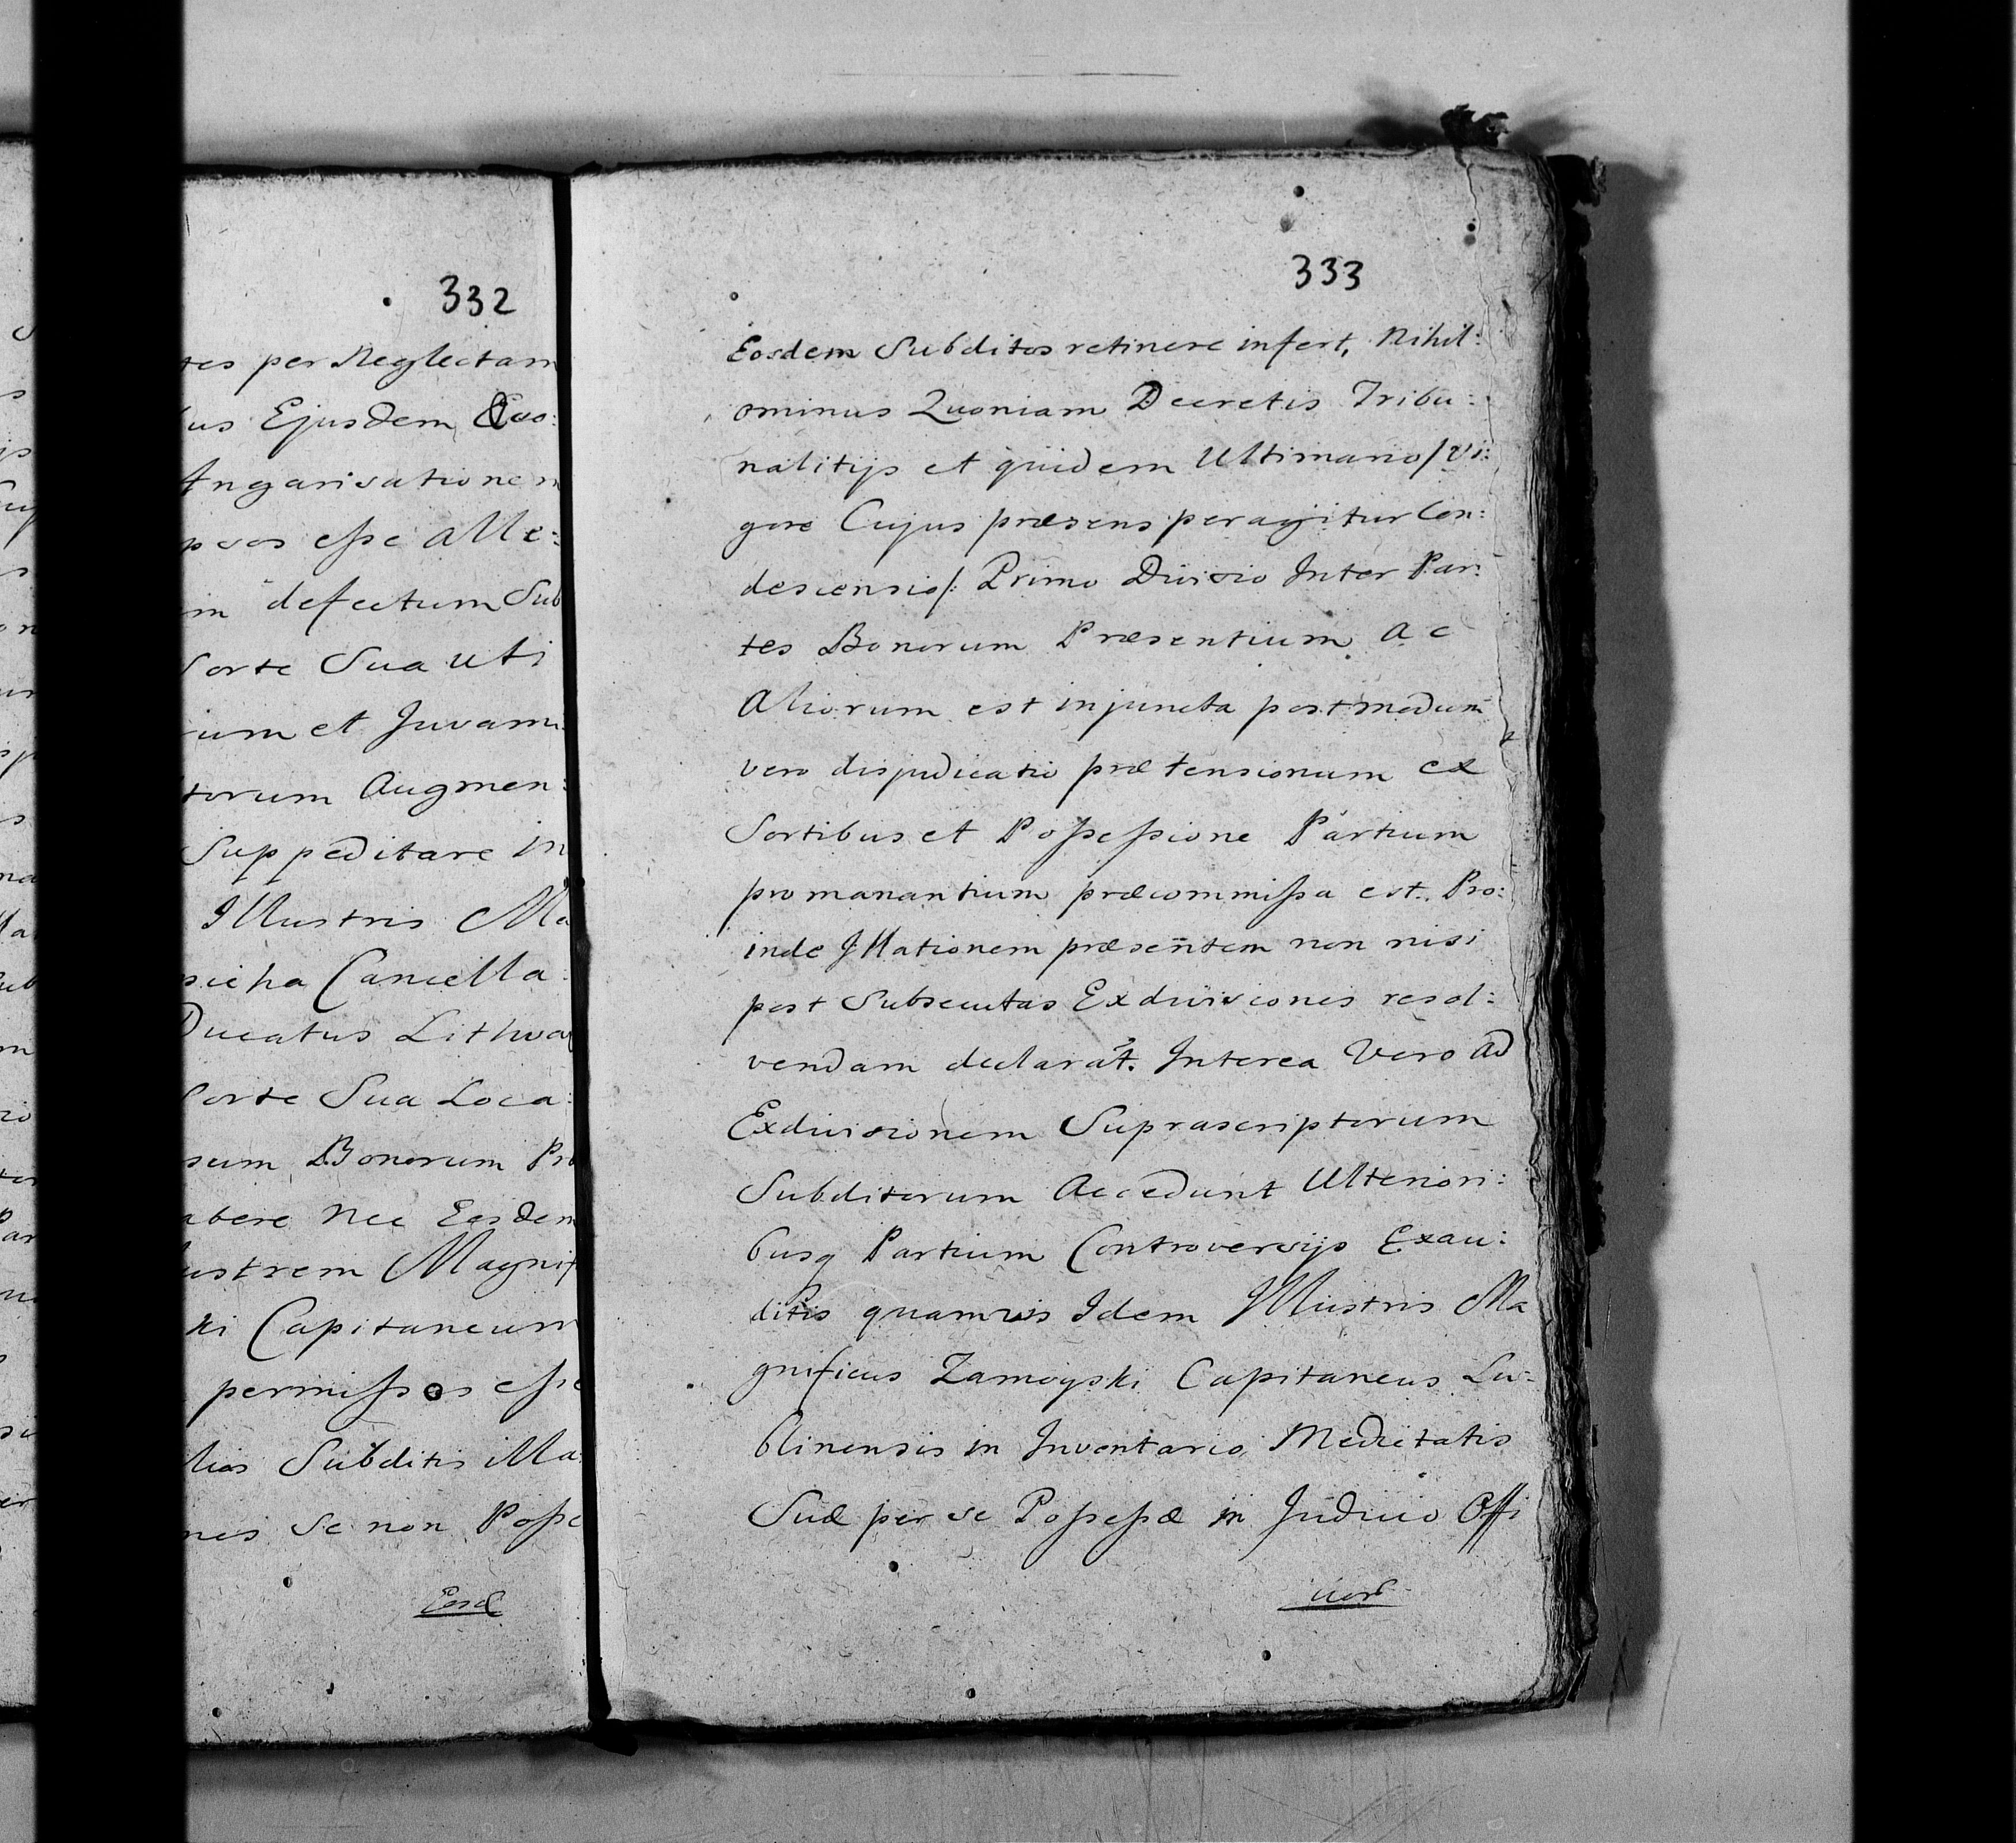 332
tes per Neglectam
us Ejusdem
Angarisationem
psos esse alle:
in defectum Sub
Sorte Sua uti
ium et Juvam:
torum Augmen:
Suppeditare in
Illustris Ma
pieha Cancella:
Ducatus Lithva
Sorte Sua Loca:
sum Bonorum Pr
abere Nec Eosdem
ustrem Magnif
ki Capitaneum
permissos esse
lias Subditis Ma:
nes se non Posse
Eosd
333
Eosdem Subditos retinere infert, Nihil:
ominus Quoniam Decretis Tribu:
nalitijs et quidem Ultimario/Vi:
gore Cujus præsens peragitur Con:
descensio/: Primo Divisio Inter Par:
tes Bonorum Præsentium ac
Aliorum est injuncta postmodum
vero disjudicatio prætensionum ex
Sortibus et Possessione Partium
promanantium præcommissa est. Pro:
inde Illationem præsentem non nisi
post Subsecutas Exdivisiones resol:
vendam declarat. Interea Vero ad
Exdivisionem Suprascriptorum
Subditorum Accedunt Ulteriori:
busq Partium Controversijs Exau:
ditis quamvis Idem Illustris Ma
gnificus Zamoyski Capitaneus Lu:
blinensis in Inventario Medietatis
Suæ per se Possessæ in Judicio Offi